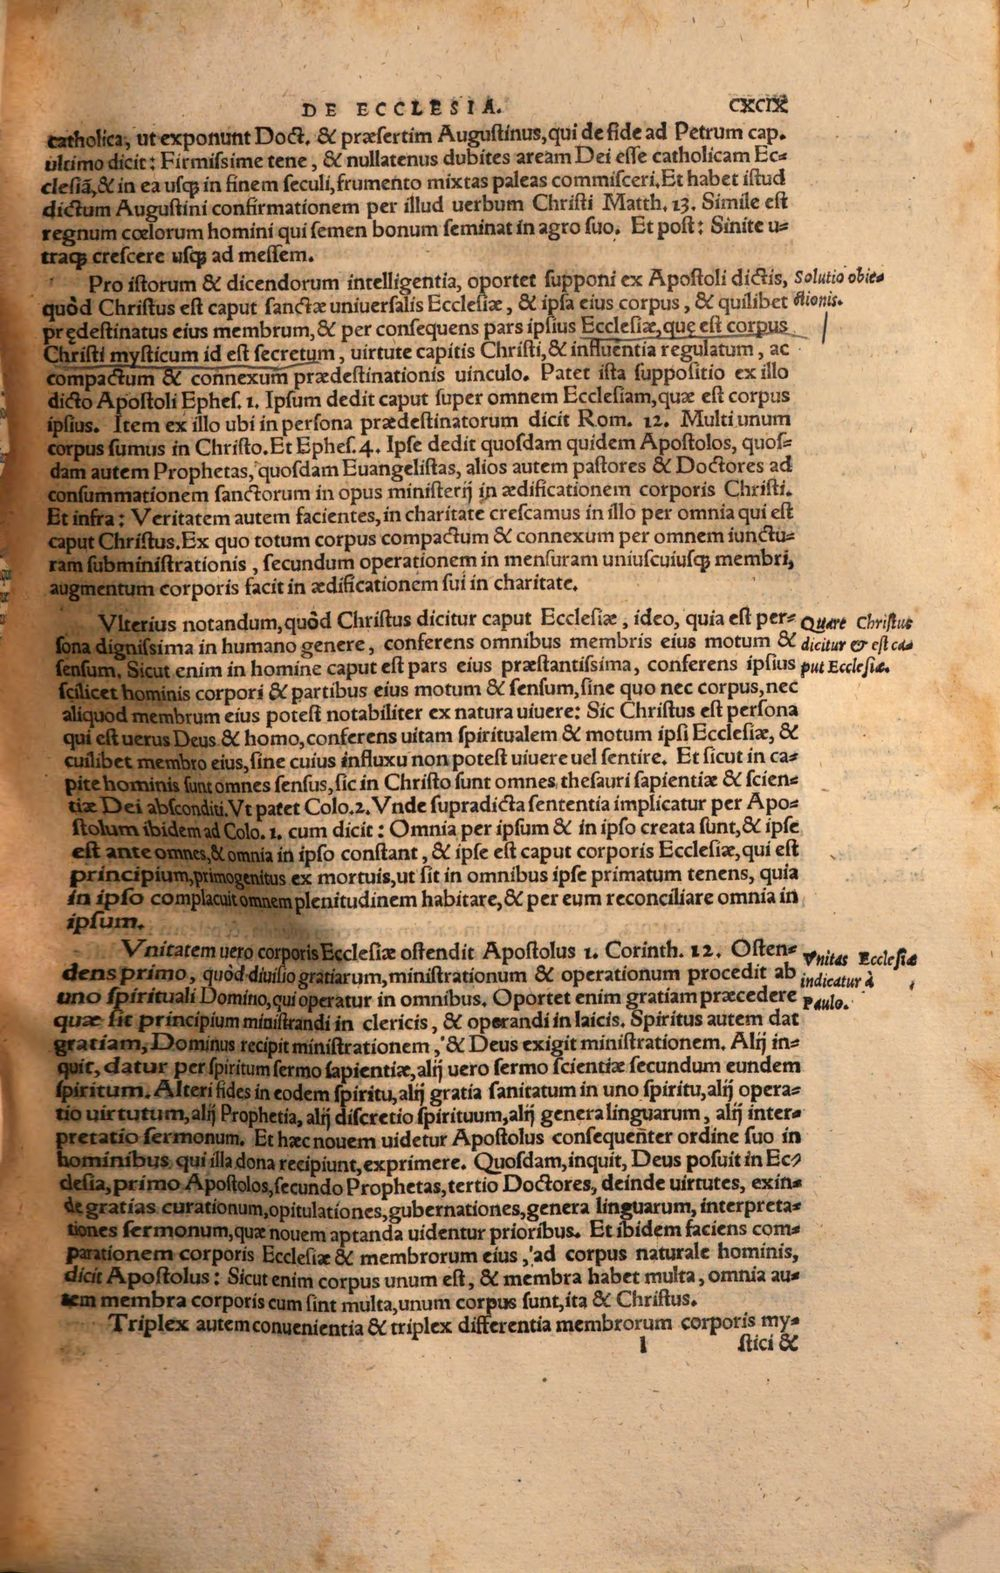 DE ECCLESIA. CXCIX
catholica, ut exponunt Doct. & præsertim Augustinus, qui de fide ad Petrum cap.
ultimo dicit: Firmissime tene, & nullatenus dubites aream Dei esse catholicam Ec-
clesiã, & in ea usq; in finem seculi, frumento mixtas paleas commisceri. Et habet istud
dictum Augustini confirmationem per illud uerbum Christi Matth. 13. Simile est
regnum cœlorum homini qui semen bonum seminat in agro suo. Et post: Sinite u-
traq; crescere usq; ad messem.
Pro istorum & dicendorum intelligentia, oportet supponi ex Apostoli dictis, Solutio obie-
quòd Christus est caput sanctæ uniuersalis Ecclesiæ, & ipsa eius corpus, & quilibet ctionis.
prędestinatus eius membrum, & per consequens pars ipsius Ecclesiæ, quę est corpus
Christi mysticum id est secretum, uirtute capitis Christi, & influentia regulatum, ac
compactum & connexum prædestinationis uinculo. Patet ista suppositio ex illo
dicto Apostoli Ephes. 1. Ipsum dedit caput super omnem Ecclesiam, quæ est corpus
ipsius. Item ex illo ubi in persona prædestinatorum dicit Rom. 12. Multi unum
corpus sumus in Christo. Et Ephes. 4. Ipse dedit quosdam quidem Apostolos, quos-
dam autem Prophetas, quosdam Euangelistas, alios autem pastores & Doctores ad
consummationem sanctorum in opus ministerij in ædificationem corporis Christi.
Et infra: Veritatem autem facientes, in charitate crescamus in illo per omnia qui est
caput Christus. Ex quo totum corpus compactum & connexum per omnem iunctu-
ram subministrationis, secundum operationem in mensuram uniuscuiusq; membri,
augmentum corporis facit in ædificationem sui in charitate.
Vlterius notandum, quòd Christus dicitur caput Ecclesiæ, ideo, quia est per- Quare Christus
sona dignissima in humano genere, conferens omnibus membris eius motum & dicitur & est ca-
sensum. Sicut enim in homine caput est pars eius præstantissima, conferens ipsius put Ecclesiæ.
scilicet hominis corpori & partibus eius motum & sensum, sine quo nec corpus, nec
aliquod membrum eius potest notabiliter ex natura uiuere: Sic Christus est persona
qui est uerus Deus & homo, conferens uitam spiritualem & motum ipsi Ecclesiæ, &
cuilibet membro eius, sine cuius influxu non potest uiuere uel sentire. Et sicut in ca-
pite hominis sunt omnes sensus, sic in Christo sunt omnes thesauri sapientiæ & scien-
tiæ Dei absconditi. Vt patet Colo. 2. Vnde supradicta sententia implicatur per Apo-
stolum ibidem ad Colo. 1. cum dicit: Omnia per ipsum & in ipso creata sunt, & ipse
est ante omnes, & omnia in ipso constant, & ipse est caput corporis Ecclesiæ, qui est
principium, primogenitus ex mortuis, ut sit in omnibus ipse primatum tenens, quia
in ipso complacuit omnem plenitudinem habitare, & per eum reconciliare omnia in
ipsum.
Vnitatem uero corporis Ecclesiæ ostendit Apostolus 1. Corinth. 12. Osten- Vnitas Ecclesiæ
dens primo, quòd diuisio gratiarum, ministrationum & operationum procedit ab indicatur à
uno spirituali Domino, qui operatur in omnibus. Oportet enim gratiam præcedere Paulo.
quæ sit principium ministrandi in clericis, & operandi in laicis. Spiritus autem dat
gratiam, Dominus recipit ministrationem, & Deus exigit ministrationem. Alij in-
quit, datur per spiritum sermo sapientiæ, alij uero sermo scientiæ secundum eundem
spiritum. Alteri fides in eodem spiritu, alij gratia sanitatum in uno spiritu, alij opera-
tio uirtutum, alij Prophetia, alij discretio spirituum, alij genera linguarum, alij inter-
pretatio sermonum. Et hæc nouem uidetur Apostolus consequenter ordine suo in
hominibus qui illa dona recipiunt, exprimere. Quosdam, inquit, Deus posuit in Ec-
clesia, primo Apostolos, secundo Prophetas, tertio Doctores, deinde uirtutes, exin-
de gratias curationum, opitulationes, gubernationes, genera linguarum, interpreta-
tiones sermonum, quæ nouem aptanda uidentur prioribus. Et ibidem faciens com-
parationem corporis Ecclesiæ & membrorum eius, ad corpus naturale hominis,
dicit Apostolus: Sicut enim corpus unum est, & membra habet multa, omnia au-
tem membra corporis cum sint multa, unum corpus sunt, ita & Christus.
Triplex autem conuenientia & triplex differentia membrorum corporis my-
l stici &